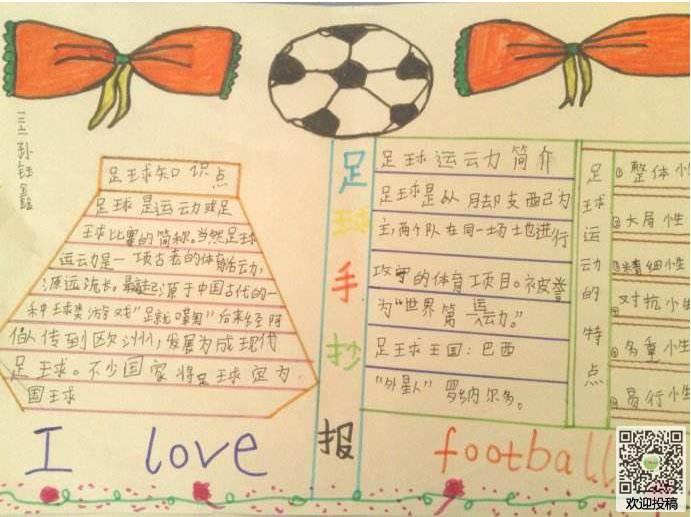 三二 孙钰鑫
足球知识点
足球是运动或足
球比赛的简称。当然足球
运动是一项古老的体育活动,
源远流长。最起源于中国古代的一
种球类游戏“足就”后来经阿
伯人传到欧洲,发展为成现代
足球。不少国家将足球定为
国球
足球手抄报
足球运动简介
足球是以用却支配己为
主,两个队在同一场土也进行
攻守的体育项目。被誉
为“世界第一运动。”
足球王国:巴西
“外星人”罗纳尔多。
足球运动的特点
①整体性
②大局性
③精细性
对抗小生
多重小生
易行小生
I love football
欢迎投稿